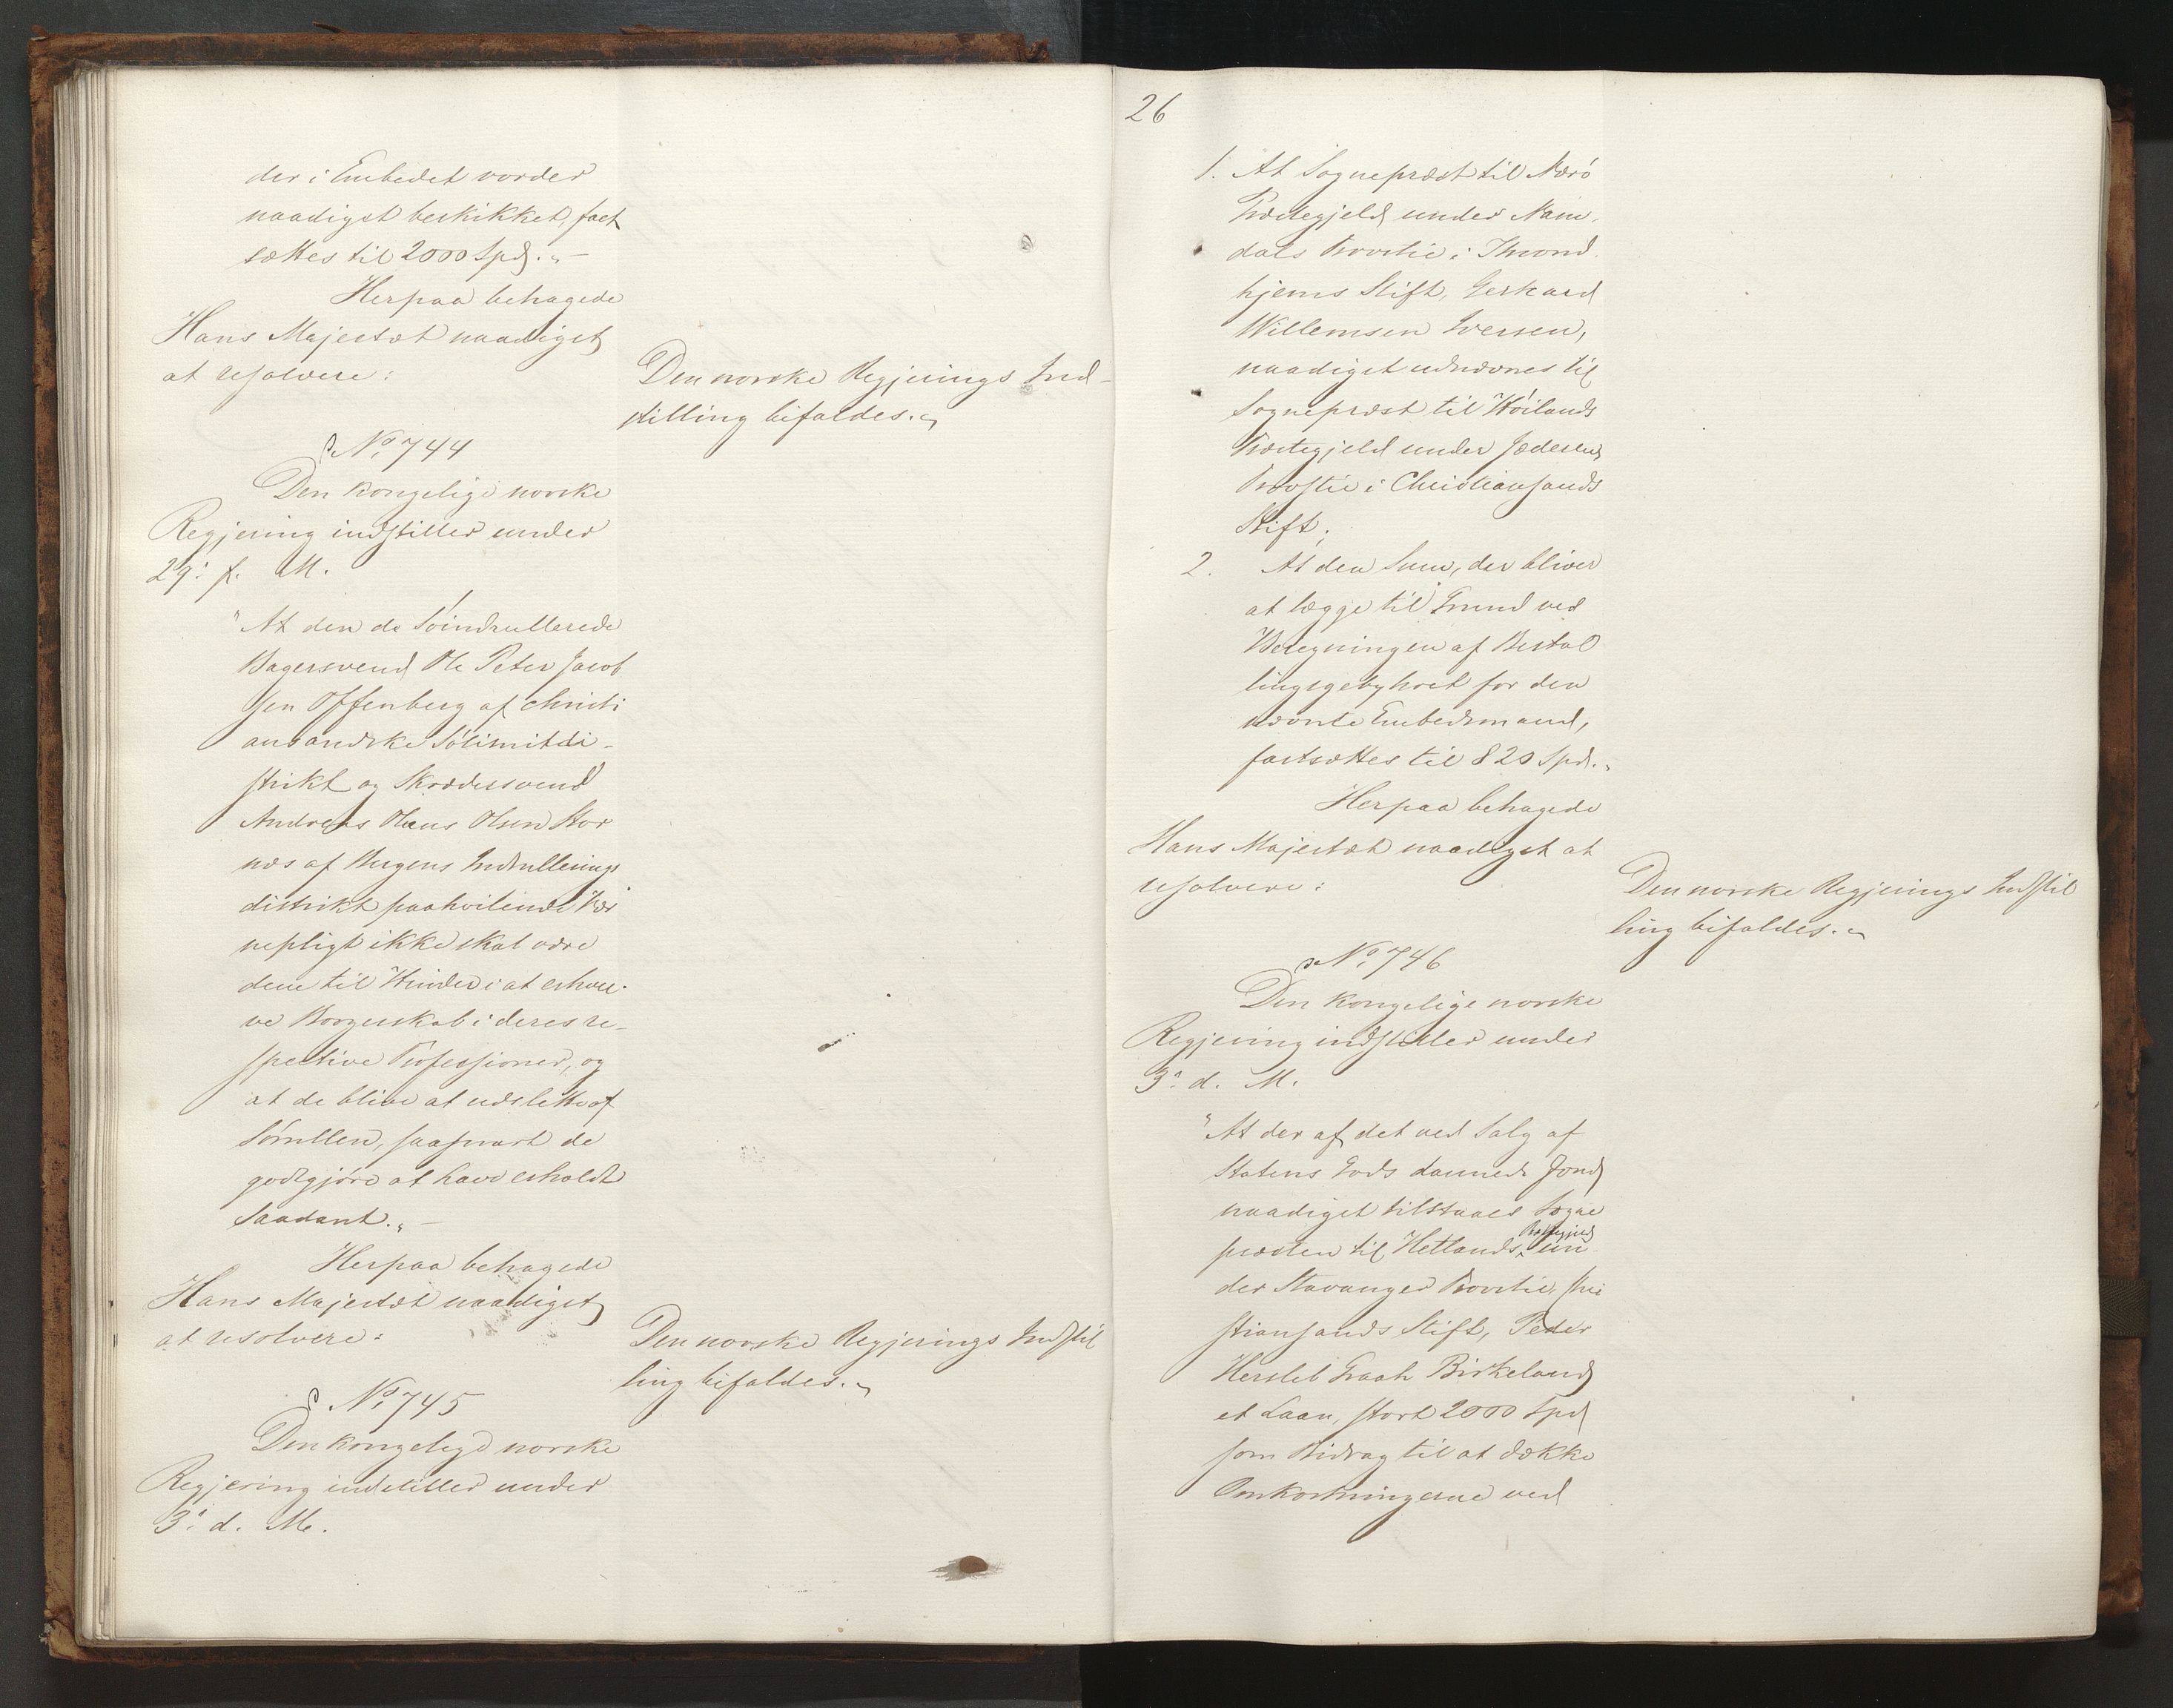 der i Embedet vorder
naadigst beskikket, fast
sættes til 2000 Spd." —
Herpaa behagede
Hans Majestæt naadigst
at resolvere:
Den norske Regjerings Ind-
stilling bifaldes.
No 744
Den kongelige norske
Regjering indstiller under
29: f. M.
"At den de Söindrullerede
Bagersvend Ole Peter Jacob
sen Offenberg af Christi
ansandske Sölimitdi-
strikt og Skrædersvend
Andreas Olaus Olsen Stor
næs af Bergens Indrullerings
distrikt paahvilende Vær
nepligt ikke skal være
dem til Hinder i at erhver-
ve Borgerskab i deres re-
spective Professioner, og
at de blive at udslette af
Sörullen, saasnart de
godtgjöre at have erholdt
saadant." —
Herpaa behagede
Hans Majestæt naadigst
at resolvere:
Den norske Regjerings Indstil
ling bifaldes.
No 745
Den kongelige norske
Regjering indstiller under
3: d. M.
26
1. At Sognepræst til Nærö
Præstegjeld under Nam-
dals Provstie i Thrond
hjems Stift, Gerhard
Willemsen Iversen,
naadigst udnævnes til
Sognepræst til Höilands
Præstegjeld under Jæderens
Provstie i Christiansands
Stift;
2. At den Sum, der bliver
at lægge til Grund ved
Beregningen af Bestal
lingsgebyhret for den
nævnte Embedsmand,
fastsættes til 820 Spd."
Herpaa behagede
Hans Majestæt naadigst at
resolvere:
Den norske Regjerings Indstil
ling bifaldes.
No 746
Den kongelige norske
Regjering indstiller under
3: d. M.
"At der af det ved Salg af
Statens Gods dannede Fond
naadigst tilstaaes Sogne
præsten til Hetlands Præstegjeld un
der Stavanger Provstie, Chri
stiansands Stift, Peder
Hersleb Graah Birkeland
et Laan, stort 2000 Spd
som Bidrag til at dække
Omkostningerne ved